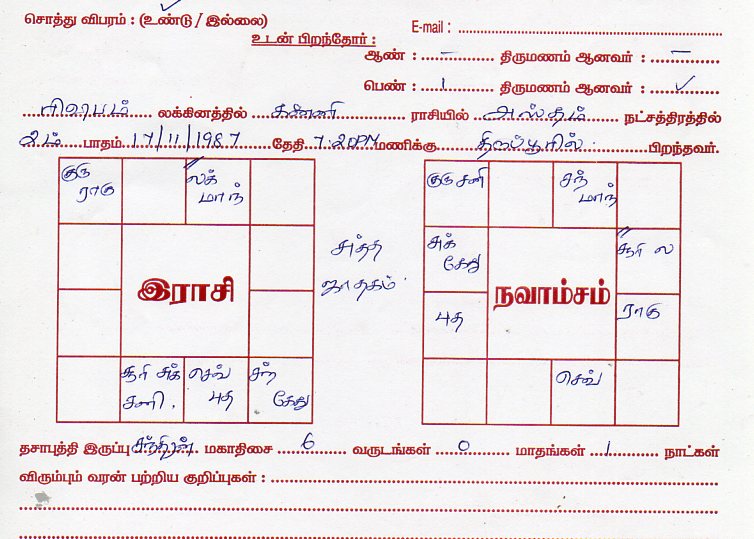 சொத்து விபரம் : (உண்டு / இல்லை)
E-mail :
உடன் பிறந்தோர் :
ஆண் : – திருமணம் ஆனவர் : –
பெண் : 1 திருமணம் ஆனவர் : ✓
ரிஷபம் லக்கினத்தில் கன்னி ராசியில் அஸ்தம் நட்சத்திரத்தில்
2ம் பாதம் 17/11/1987 தேதி 7:20PM மணிக்கு பிறந்தவர்.
குரு ராகு
லக் மாந்
இராசி
சூரி சுக் சனி.
செவ் புத
சந் கேது
சுத்த ஜாதகம்
குரு சனி
சந் மாந்
சுக் கேது
சூரி ல
நவாம்சம்
புத
ராகு
செவ்
தசாபுத்தி இருப்பு சந்திரன் மகாதிசை 6 வருடங்கள் 0 மாதங்கள் 1 நாட்கள்
விரும்பும் வரன் பற்றிய குறிப்புகள் :